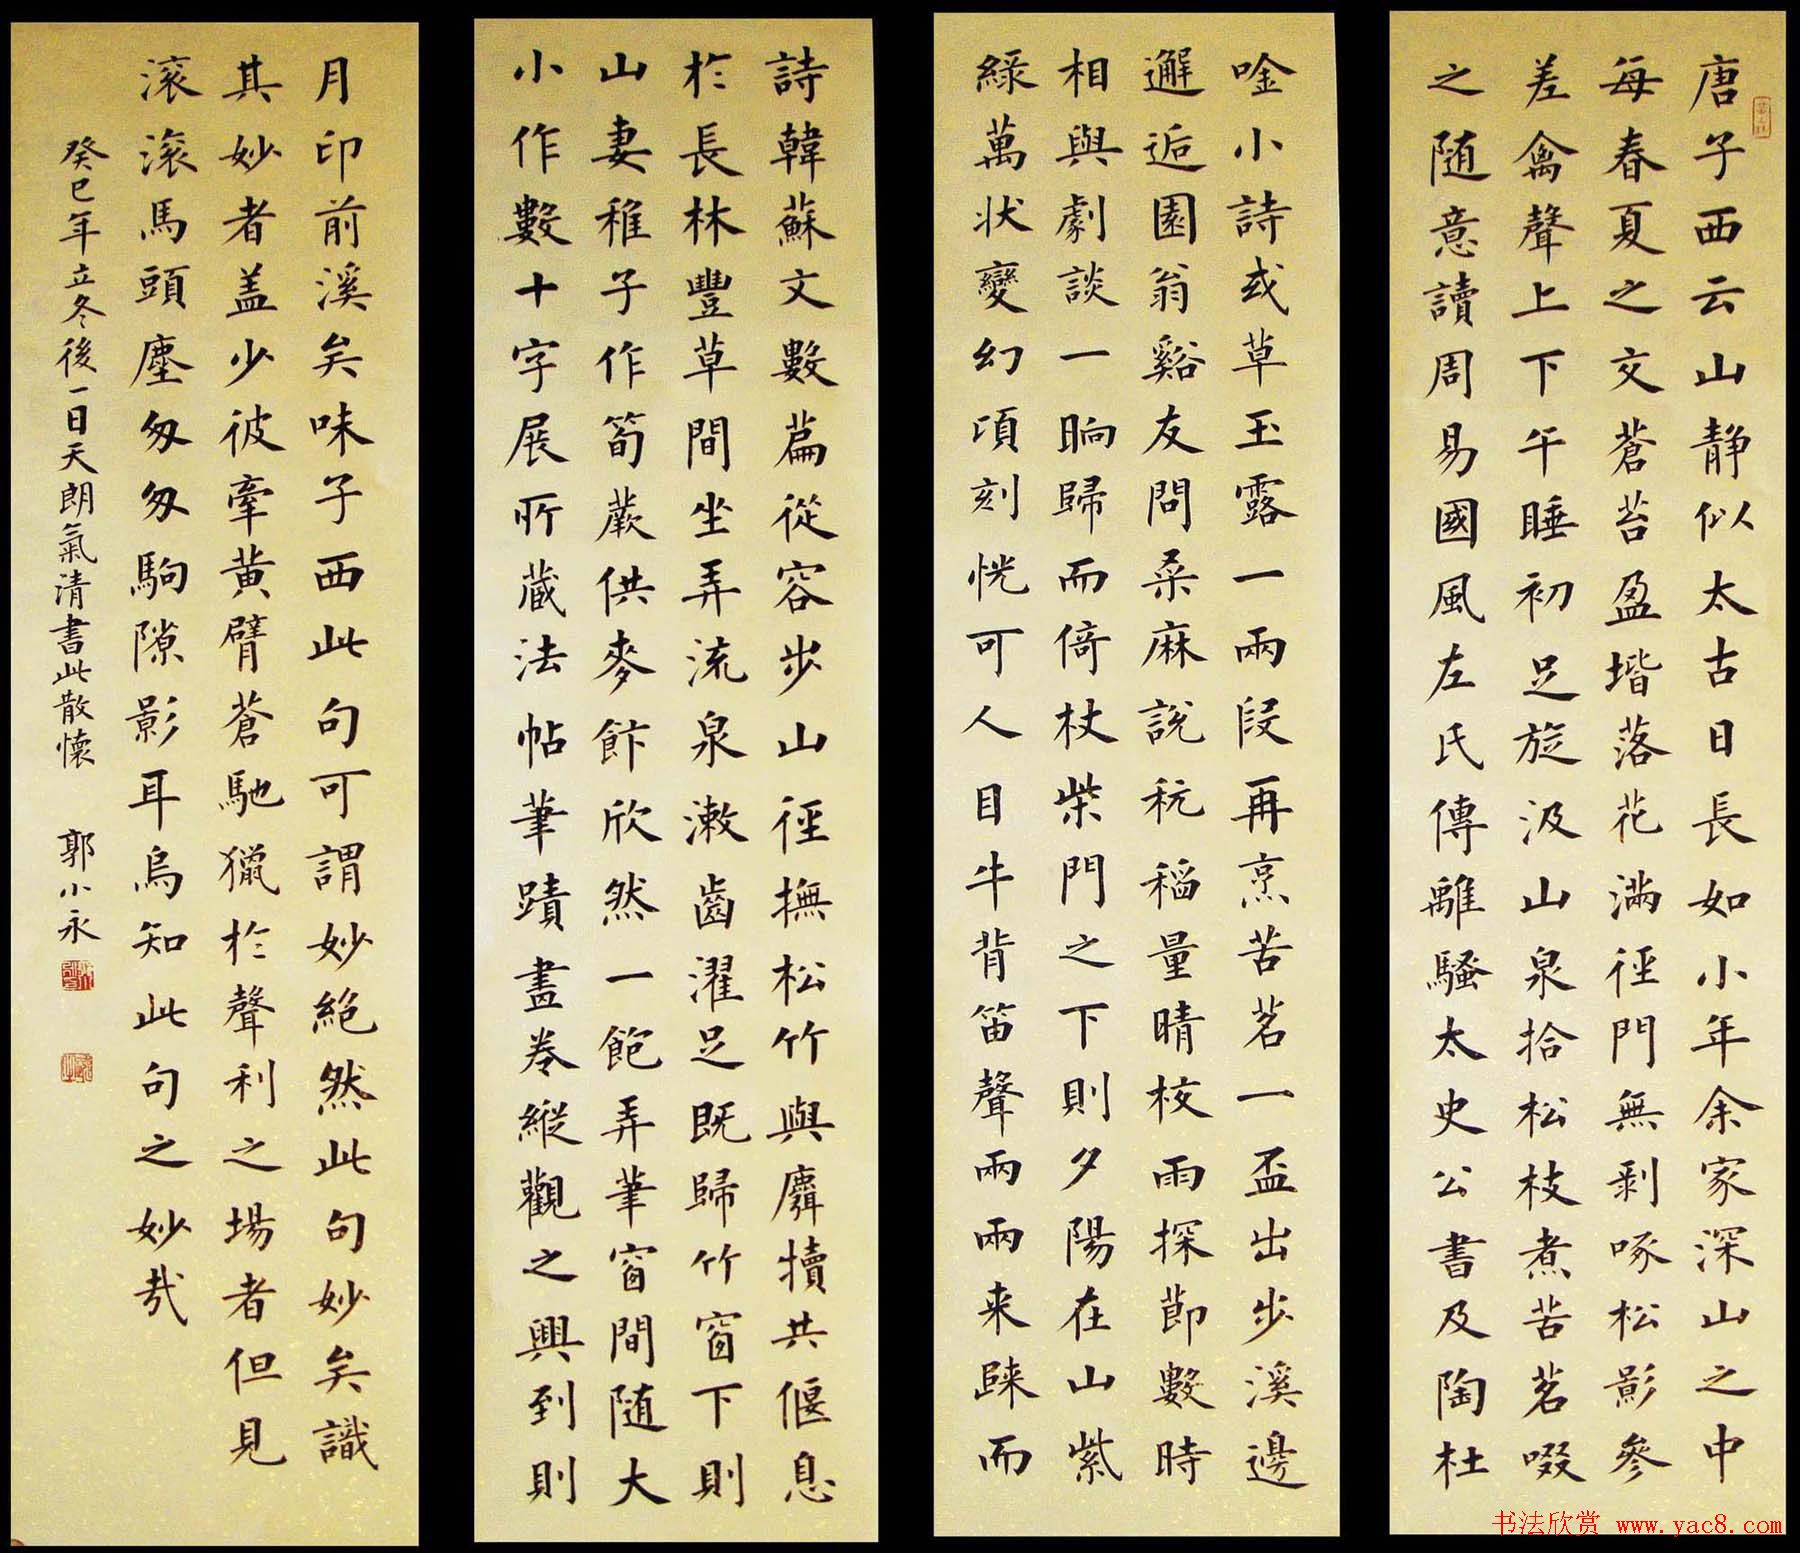 唐子西云山静似太古日長如小年余家深山之中
每春夏之交蒼苔盈堦落花滿徑門無剥啄松影參
差禽聲上下午睡初足旋汲山泉拾松枝煮苦茗啜
之随意讀周易國風左氏傳離騷太史公書及陶杜
唫小詩或草玉露一兩段再烹苦茗一盃出步溪邊
邂逅園翁谿友問桑麻說秔稻量晴校雨探節數時
相與劇談一晌歸而倚杖柴門之下則夕陽在山紫
綠萬状變幻頃刻恍可人目牛背笛聲兩兩来歸而
詩韓蘇文數篇從容步山徑撫松竹與麛犢共偃息
於長林豐草間坐弄流泉漱齒濯足既歸竹窗下則
山妻稚子作筍蕨供麥飰欣然一飽弄筆窗間随大
小作數十字展所藏法帖筆蹟畫卷縱觀之興到則
月印前溪矣味子西此句可謂妙絕然此句妙矣識
其妙者盖少彼牽黄臂蒼馳獵於聲利之場者但見
滚滚馬頭塵匆匆駒隙影耳烏知此句之妙哉
癸巳年立冬後一日天朗氣清書此散懷 郭小永
书法欣赏 www.yac8.com